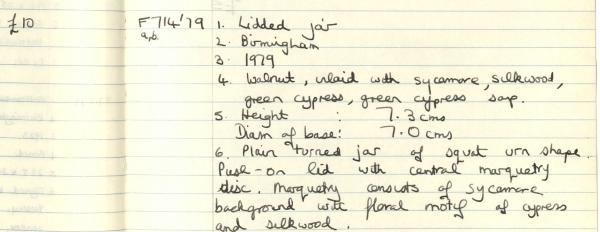 £10 F714'79 1. Lidded jar
a,b. 2. Birmingham
3. 1979
4. Walnut, inlaid with sycamore, silkwood,
green cypress, green cypress sap.
5. Height : 7.3 cms
Diam of base: 7.0 cms
6. Plain turned jar of squat urn shape.
Push-on lid with central marquetry
disc. Marquetry consists of sycamore
background with floral motif of cypress
and silkwood.